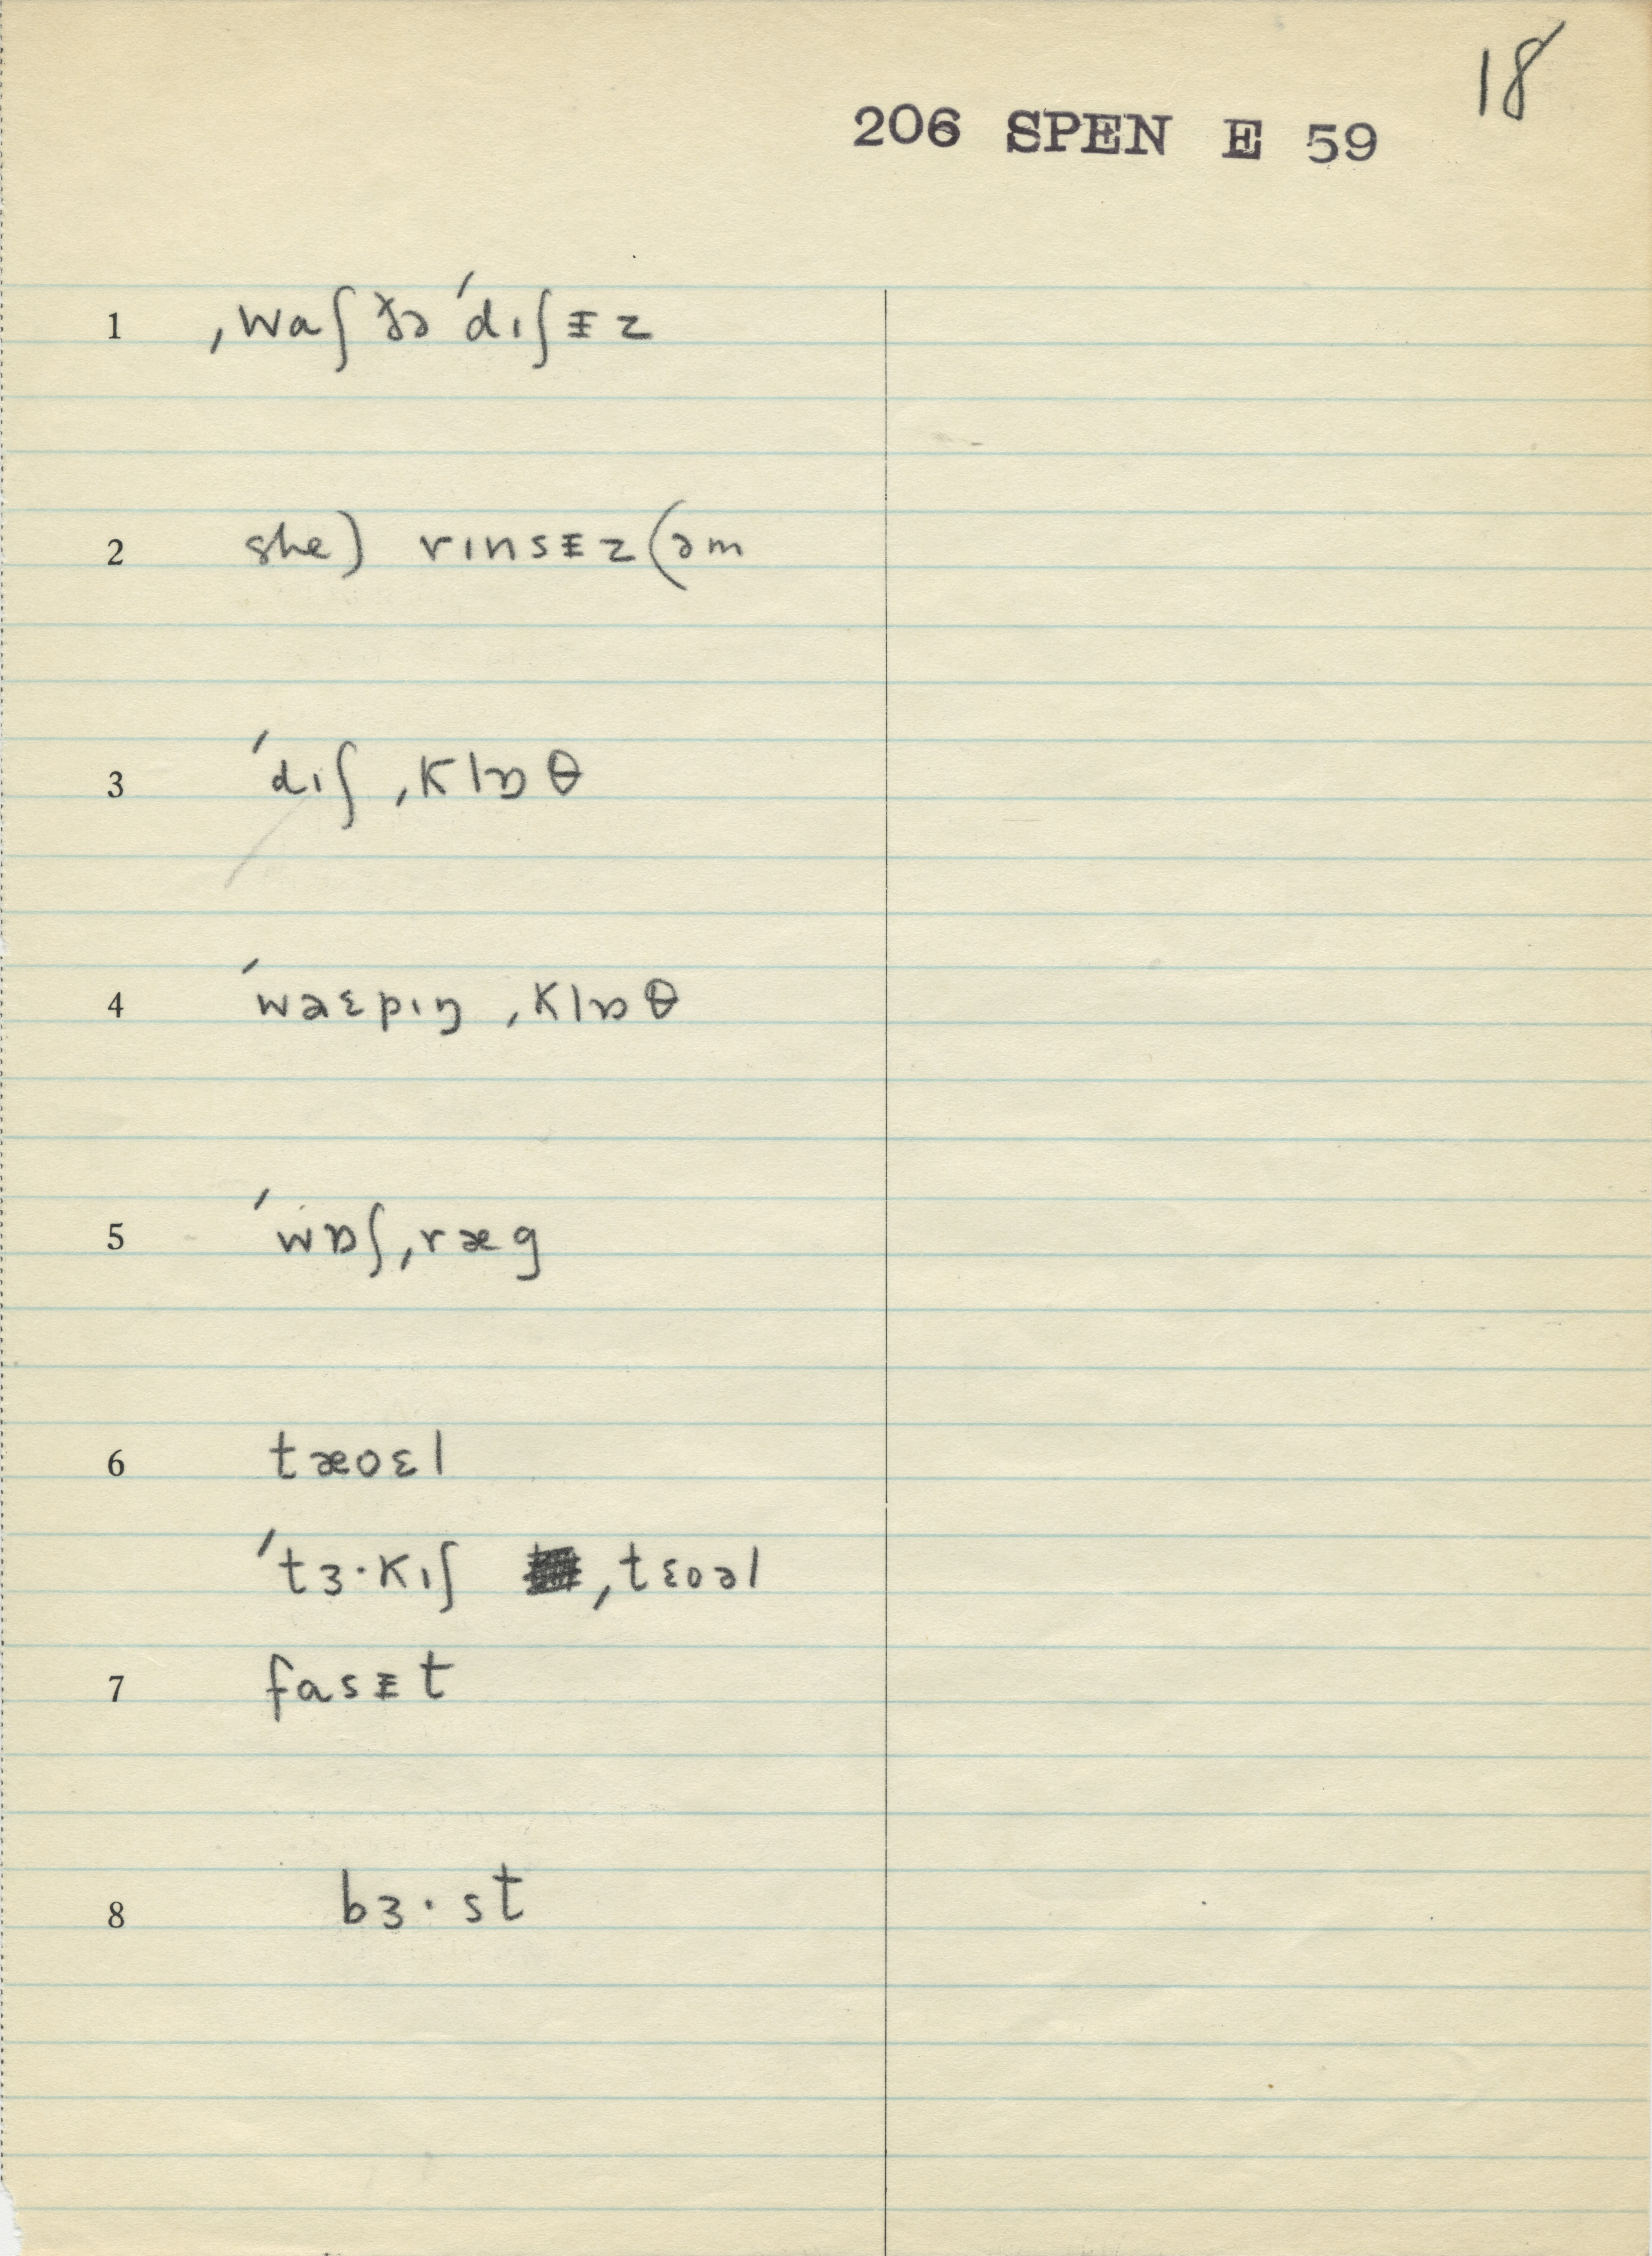 18
206 SPEN E 59
1 ˌwaʃ ðə ˈdɪʃᵻz
2 she) rɪnsᵻz (əm
3 ˈdɪʃ ˌklɒθ
4 ˈwaɛpɪŋ ˌklɒθ
5 ˈwɒʃˌræg
6 tæoɛl
ˈtɜ·kɪʃ ˌtɛoəl
7 fasᵻt
8 bɜ·st